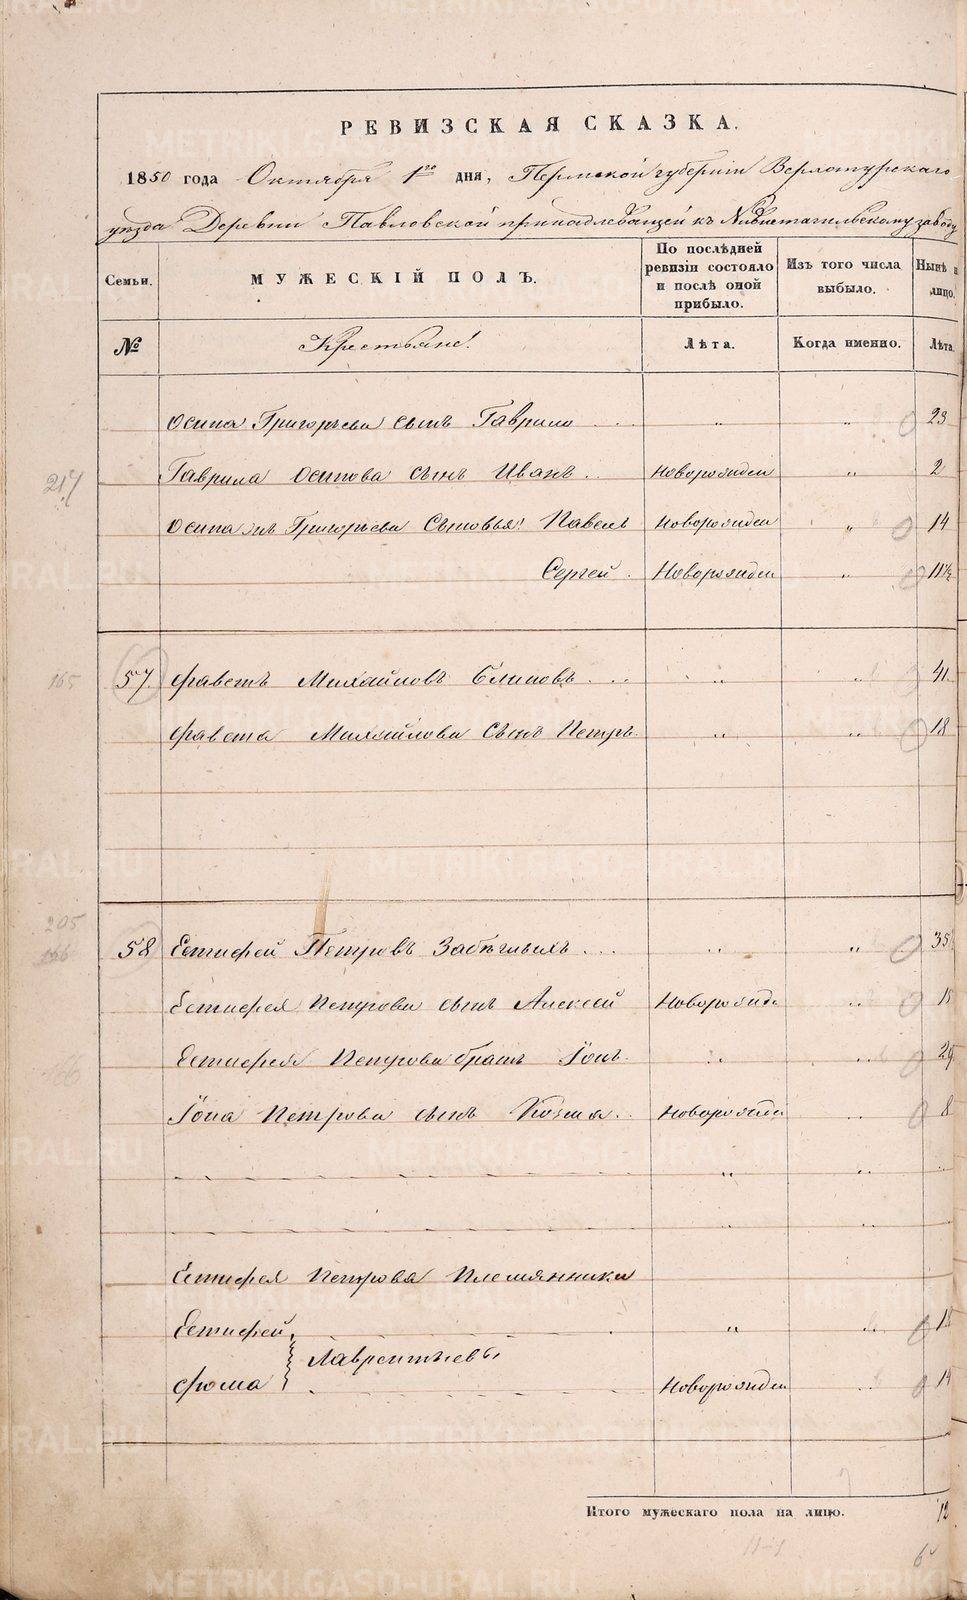 РЕВИЗСКАЯ СКАЗКА.
1850 года Октября 1го дня, Пермской губернiи Верхотурскаго
уѣзда Деревни Павловской принадлежащей къ Нижнетагильскому заводу
Семьи. МУЖЕСКIЙ ПОЛЪ. По послѣдней ревизiи состояло и послѣ оной прибыло. Изъ того числа выбыло. Нынѣ на лицо.
№ Крестьяне! Лѣта. Когда именно. Лѣта.
Осипа Григорьева сынъ Гаврило „ „ 23
217 Гаврила Осипова сынъ Иванъ Новорожден „ 2
Осипа Григорьева Сыновья: Павелъ Новорожден „ 14
Сергей Новорожден „ 11½
165 57. Фавстъ Михайловъ Блиновъ „ „ 41
Фавста Михайлова Сынъ Петръ „ „ 18
205
166 58 Естифей Петровъ Забѣглыхъ „ „ 35
Естифея Петрова сынъ Алексей Новорожде „ 15
166 Естифея Петрова братъ Iонъ „ „ 29
Iона Петрова сынъ Козма Новорожде „ 8
„ „
„ „
Естифея Петрова Племянники
Естифей „ „ 18
Лаврентьевы
Фома Новорожден „ 14
Итого мужескаго пола на лицо. 12